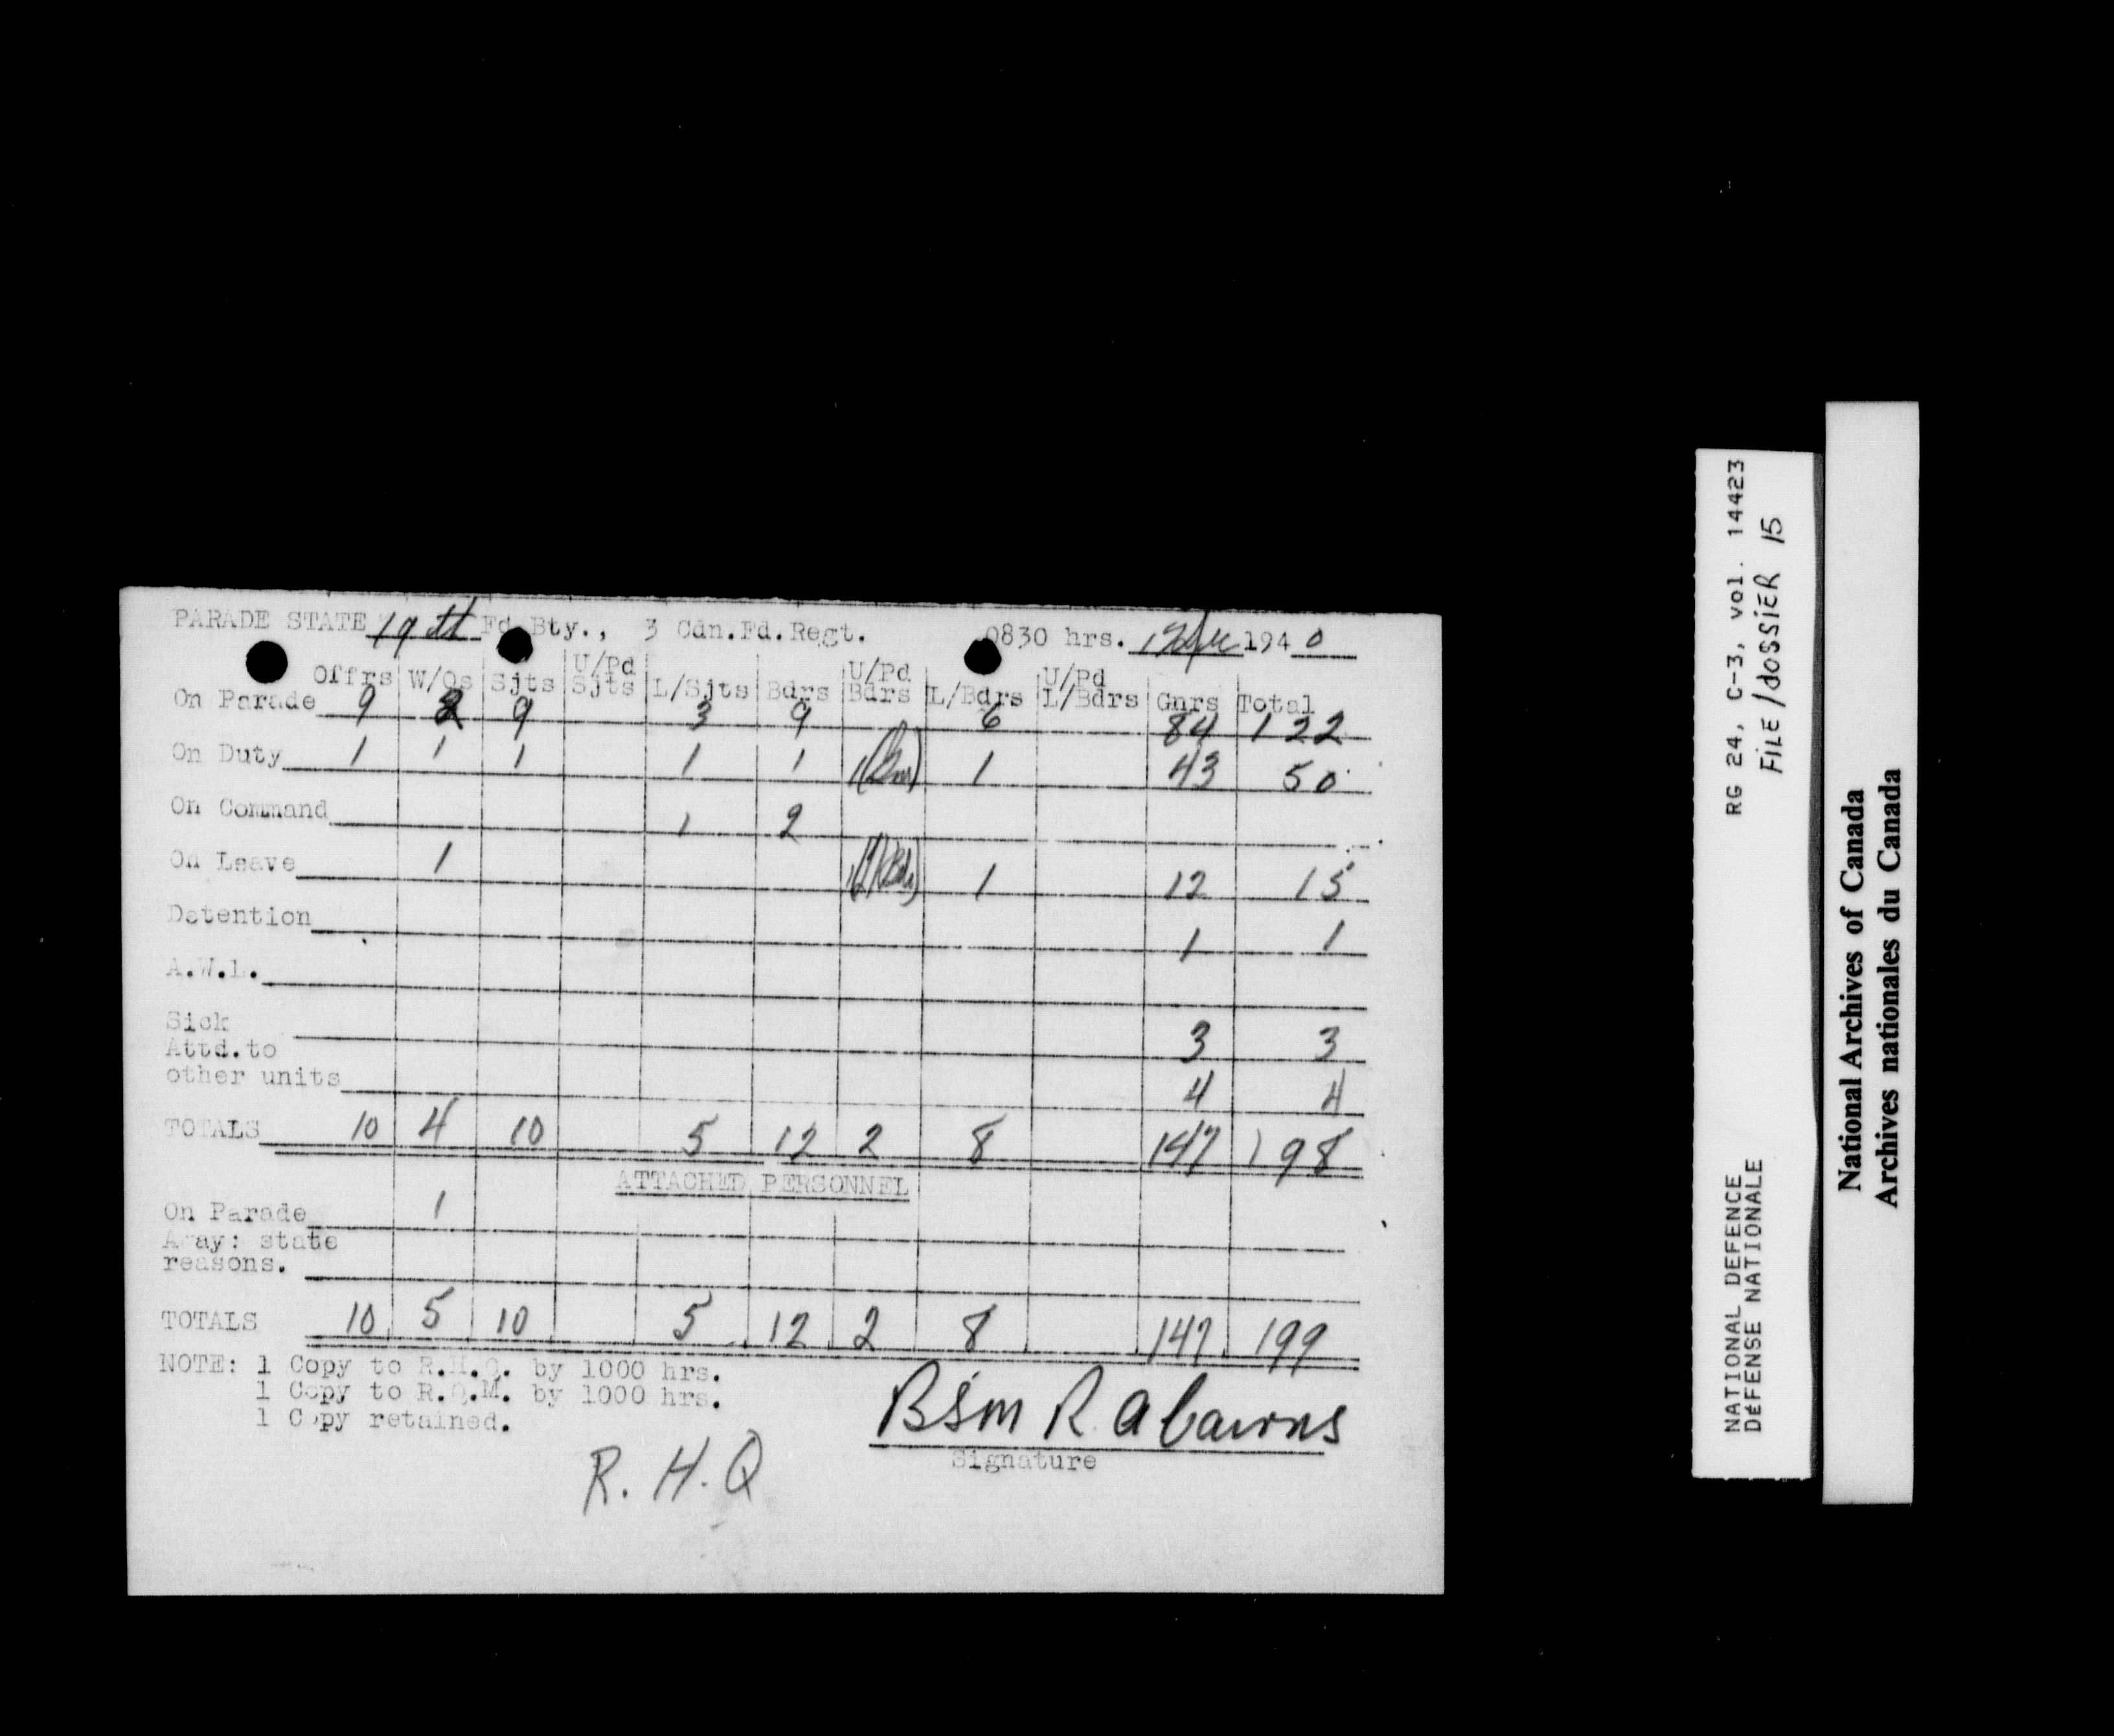 PARADE STATE 19th Fd Bty., 3 Cdn.Fd.Regt. 0830 hrs. 1940
Offrs W/Os Sjts U/Pd Sjts L/Sjts Bdrs U/Pd Bdrs L/Bdrs U/Pd L/Bdrs Gnrs Total
On Parade 9 2 9 3 9 6 84 122
On Duty 1 1 1 1 1 1 1 43 50
On Command 1 2
On Leave 1 1 1 12 15
Detention 1 1
A.W.L.
Sick 3 3
Attd.to
other units 4 4
TOTALS 10 4 10 5 12 2 8 147 198
ATTACHED PERSONNEL
On Parade 1
Away: state
reasons.
TOTALS 10 5 10 5 12 2 8 147 199
NOTE: 1 Copy to R.H.Q. by 1000 hrs.
1 Copy to R.Q.M. by 1000 hrs.
1 Copy retained.
BSM R A Cairns
Signature
R.H.Q
RG 24, C-3, vol. 14423
FILE/DOSSIER 15
NATIONAL DEFENCE
DÉFENSE NATIONALE
National Archives of Canada
Archives nationales du Canada